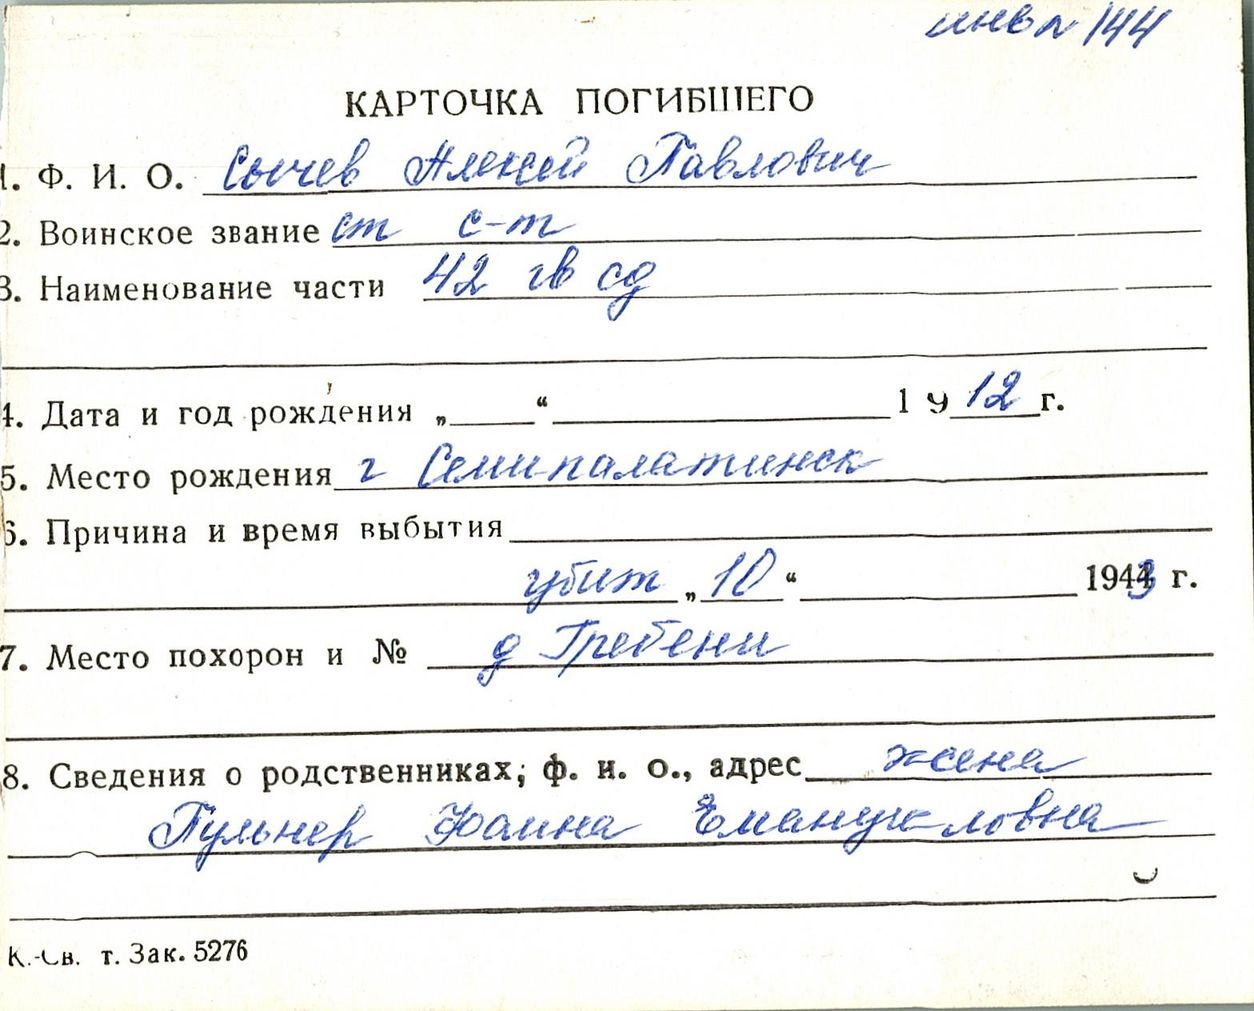 инв № 144
КАРТОЧКА ПОГИБШЕГО
1. Ф. И. О. Сычев Алексей Павлович
2. Воинское звание ст с-т
3. Наименование части 42 гв сд
4. Дата и год рождения „ “ 1912 г.
5. Место рождения г Семипалатинск
6. Причина и время выбытия
убит „10“ 1943 г.
7. Место похорон и № д Гребени
8. Сведения о родственниках, ф. и. о., адрес жена
Гульнер Фаина Емануиловна
К.-Св. т. Зак. 5276